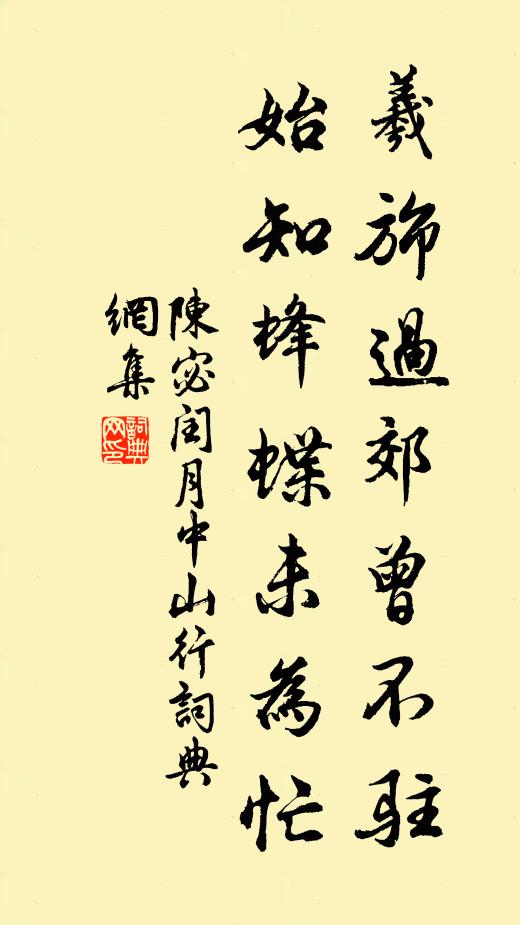 羲旆過郊曾不駐
始知蜂蝶未為忙
陳宓閏月中山行詞典
網集
詞典
网印